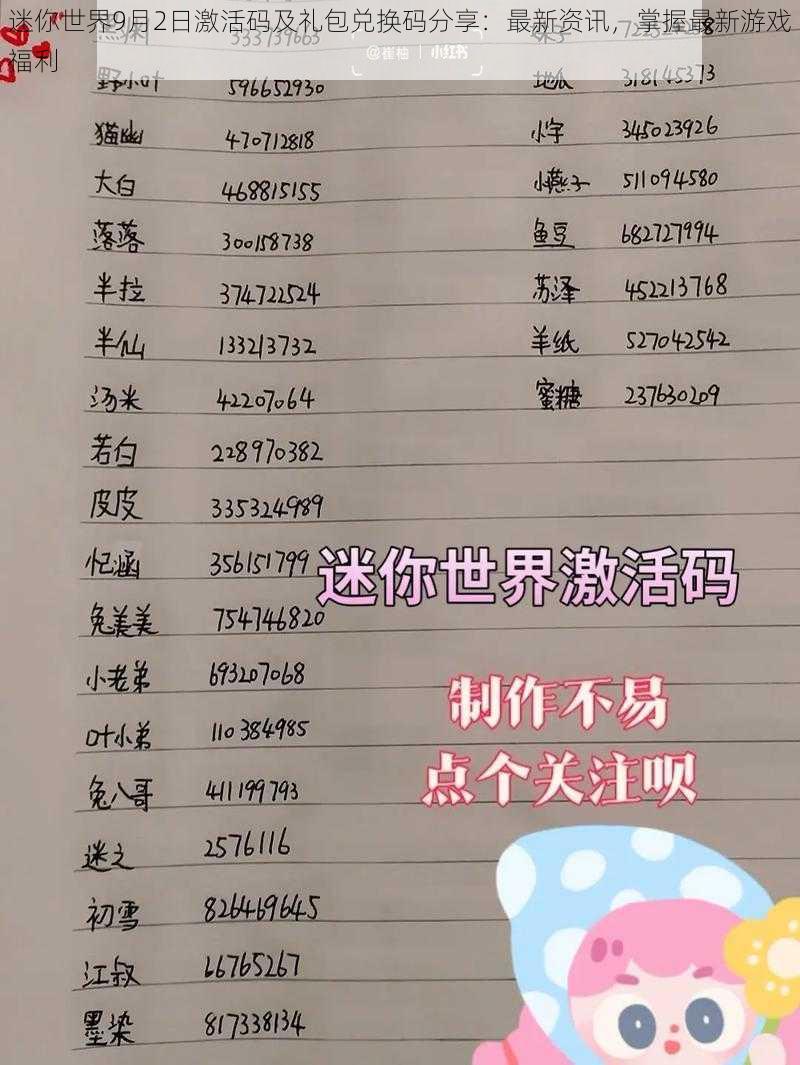 迷你世界9月2日激活码及礼包兑换码分享：最新资讯，掌握最新游戏
福利
@崔柚 | 小红书
野小叶 596652930
猫幽 470712818
大白 468815155
落落 300158738
半拉 374722524
半仙 133213732
汤米 42207064
若白 228970382
皮皮 335324989
忆涵 356151799
兔美美 754746820
小老弟 693207068
叶小弟 110384985
兔八哥 411199793
迷之 2576116
初雪 826469645
江叔 66765267
墨染 817338134
地瓜 318145373
小字 345023926
小燕子 511094580
鱼豆 682727994
苏泽 452213768
羊纸 527042542
蜜糖 237630209
迷你世界激活码
制作不易
点个关注呗